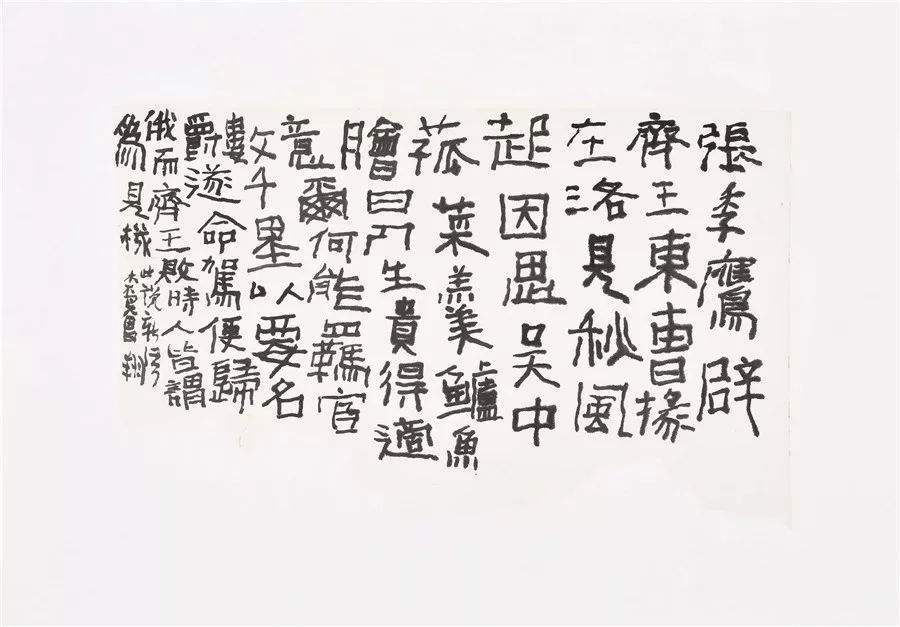 張季鷹辟
齊王東曹掾
在洛見秋風
起因思吳中
菰菜羹鱸魚
膾曰人生貴得適
意爾何能羈宦
數千里以要名
爵遂命駕便歸
俄而齊王敗時人皆謂
為見機
世説新語
曾翔